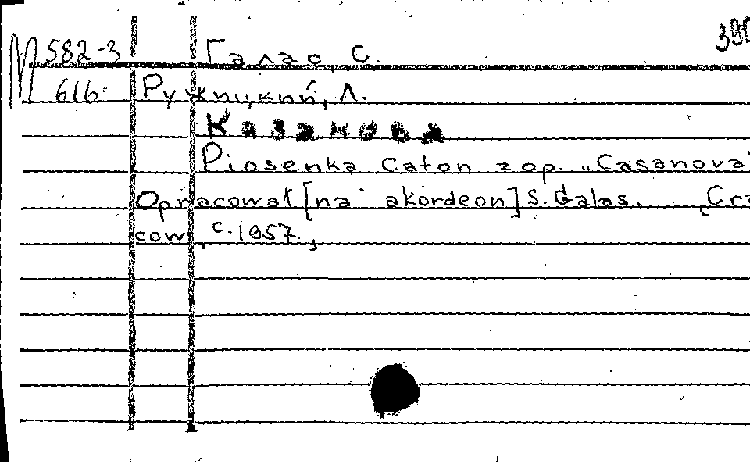 390
М 582-3 Галас, С.
616 Ружицкий, Л.
Казанова
Piosenka Caton z op. „Casanova"
Opracował [na akordeon] S. Galas. [Cra
cow, c. 1957.,